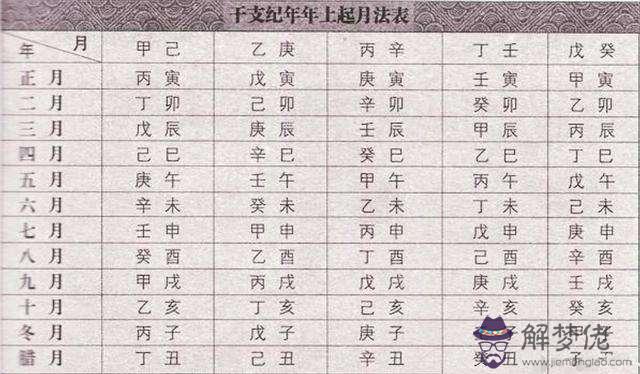 干支纪年年上起月法表
年 月 甲 己 乙 庚 丙 辛 丁 壬 戊 癸
正 月 丙 寅 戊 寅 庚 寅 壬 寅 甲 寅
二 月 丁 卯 己 卯 辛 卯 癸 卯 乙 卯
三 月 戊 辰 庚 辰 壬 辰 甲 辰 丙 辰
四 月 己 巳 辛 巳 癸 巳 乙 巳 丁 巳
五 月 庚 午 壬 午 甲 午 丙 午 戊 午
六 月 辛 未 癸 未 乙 未 丁 未 己 未
七 月 壬 申 甲 申 丙 申 戊 申 庚 申
八 月 癸 酉 乙 酉 丁 酉 己 酉 辛 酉
九 月 甲 戌 丙 戌 戊 戌 庚 戌 壬 戌
十 月 乙 亥 丁 亥 己 亥 辛 亥 癸 亥
冬 月 丙 子 戊 子 庚 子 子
腊 月 丁 丑 己 丑 辛 丑 癸 丑
解梦佬
www.jiemenglao.com